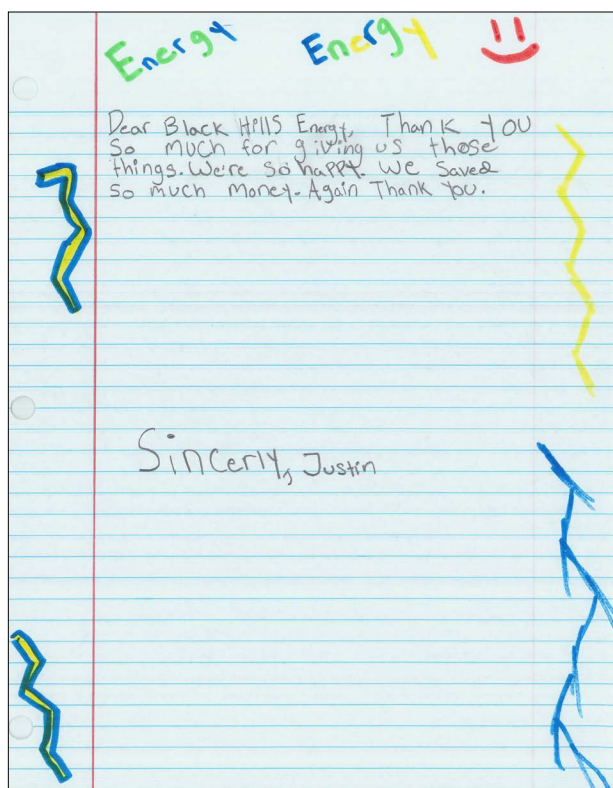 Energy Energy
Dear Black Hills Energy, Thank you
So much for giving us those
things. We're so happy. We saved
so much money. Again Thank you.
Sincerly, Justin